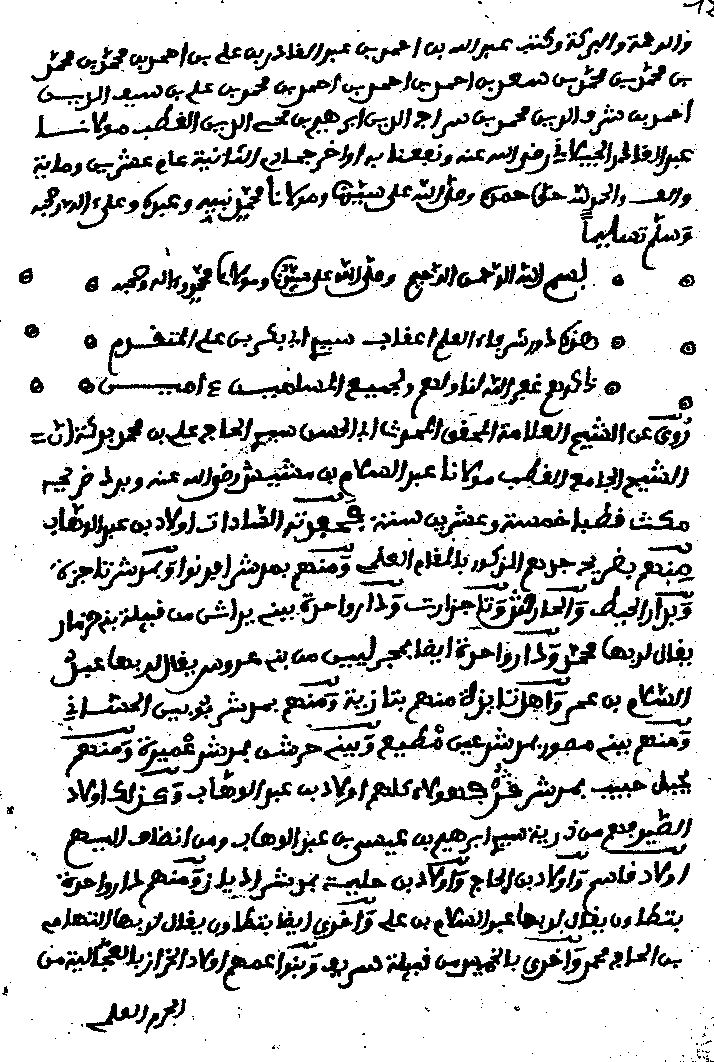 والرحمة والبركة وكتب عبد الله بن احمد بن عبد القادر بن علي بن احمد بن محمد بن محمد
بن محمد بن محمد بن سعد بن احمد بن احمد بن احمد بن محمد بن علي بن سيف الدين
احمد بن شرف الدين محمد بن سراج الدين ابرهيم بن محي الدين القطب مولانا
عبد القادر الجيلاني رضي الله عنه ونفعنا به اواخر جمادى الثانية عام عشرين وماية
والف والحمد لله حق حمده وصلى الله على سيدنا ومولانا محمد نبيه وعبده وعلى اله وصحبه
وسلم تسليما
بسم الله الرحمن الرحيم وصلى الله على سيدنا ومولانا محمد واله وصحبه
هذه شرفاء العلم اعقاب سيدي ابي بكر بن علي المتقدم
ذكره غفر الله لنا ولهم ولجميع المسلمين امين
روي عن الشيخ العلامة المحقق ابي الحسن سيدي الحاج علي بن محمد بركة ان
الشيخ الجامع القطب مولانا عبد السلام بن مشيش رضي الله عنه وبرد ضريحه
مكث قطبا خمسة وعشرين سنة السادات اولاد بن عبد الوهاب
منهم بضريح جدهم المذكور بالمقام العلمي ومنهم بمدشر ابرنوا وبمدشر تاجزة
وبدار الحيط والحارش وتاجزارت ودار واحدة ببني يراش من قبيلة بني حزمار
يقال لربها محمد ودار واحدة ايضا بحجر ليس من بني عروس يقال لربها عبد
السلام بن عمر واهل تايزة منهم بتازية ومنهم بمدشر
ومنهم ببني مصور بمدشر عين مطيع وبني حرشن بمدشر غميرة ومنهم
بجبل حبيب بمدشر هؤلاء كلهم اولاد بن عبد الوهاب وكذلك اولاد
الطير منهم من ذرية سيدي ابرهيم بن عيسى بن عبد الوهاب ومن انضاف اليهم
اولاد قاسم واولاد بن الحاج واولاد بن حليمة بمدشر ومنهم دار واحدة
بتطاون يقال لربها عبد السلام بن علي واخرى ايضا بتطاون يقال لربها التهامي
بن الحاج محمد واخرى بالخميس من قبيلة سريف وبنوا عمهم اولاد الخراز من
الحرم العلمي